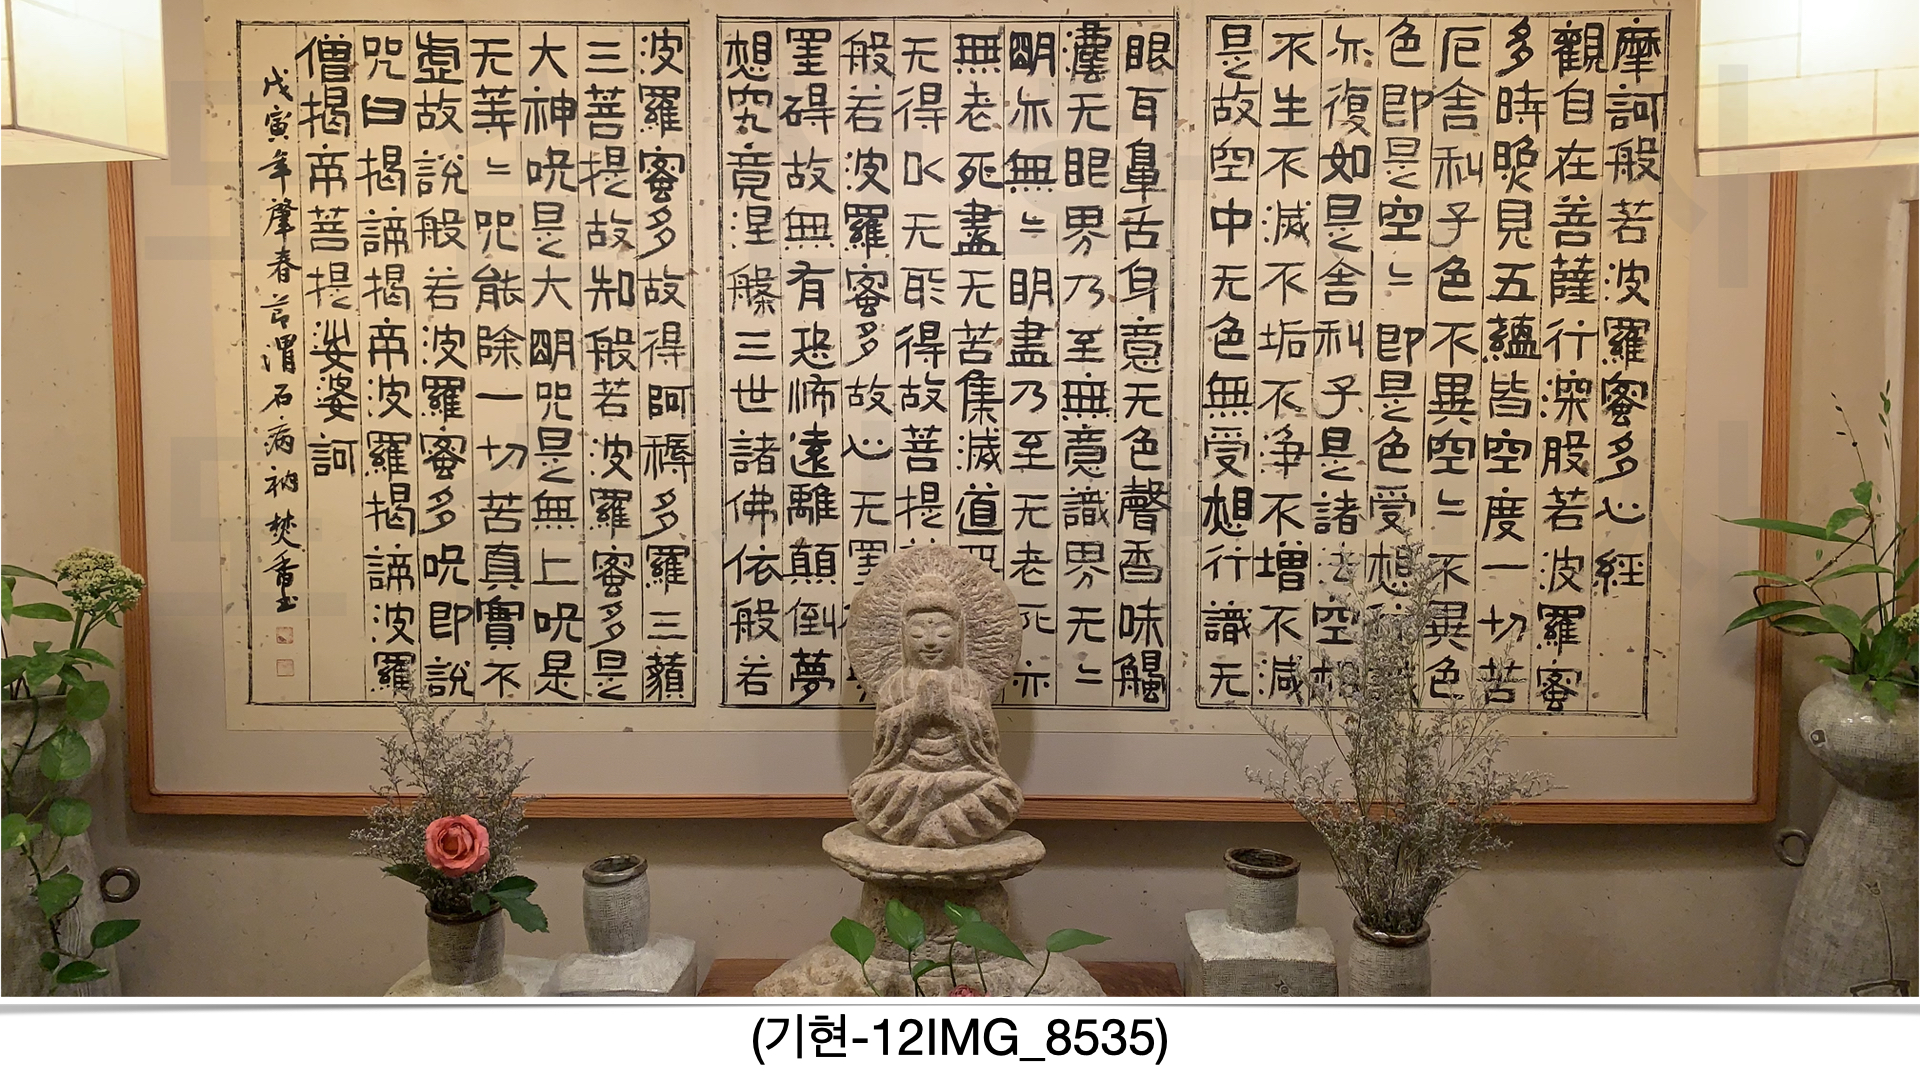 摩訶般若波羅蜜多心經
觀自在菩薩行深般若波羅蜜
多時照見五蘊皆空度一切苦
厄舍利子色不異空〻不異色
色即是空〻即是色受想行識
亦復如是舍利子是諸法空相
不生不滅不垢不淨不增不減
是故空中无色無受想行識无
眼耳鼻舌身意无色聲香味觸
灋无眼界乃至無意識界无〻
明亦無〻明盡乃至无老死亦
無老死盡无苦集滅道無
无得以无所得故菩提
般若波羅蜜多故心无罣
罣碍故無有恐怖遠離顛倒夢
想究竟涅槃三世諸佛依般若
波羅蜜多故得阿耨多羅三藐
三菩提故知般若波羅蜜多是
大神呪是大明呪是無上呪是
无等〻呪能除一切苦真實不
虛故說般若波羅蜜多呪即說
呪曰揭諦揭帝波羅揭諦波羅
僧揭帝菩提娑婆訶
戊寅年肇春節渭石病衲焚香
(기현-12IMG_8535)